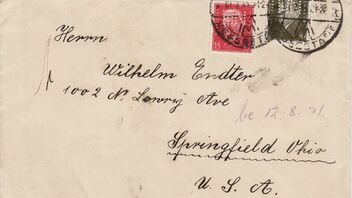 Herrn
Wilhelm Endter
1002 N. Lowry Ave
be 12.8.31.
Springfield Ohio
U. S. A.
15